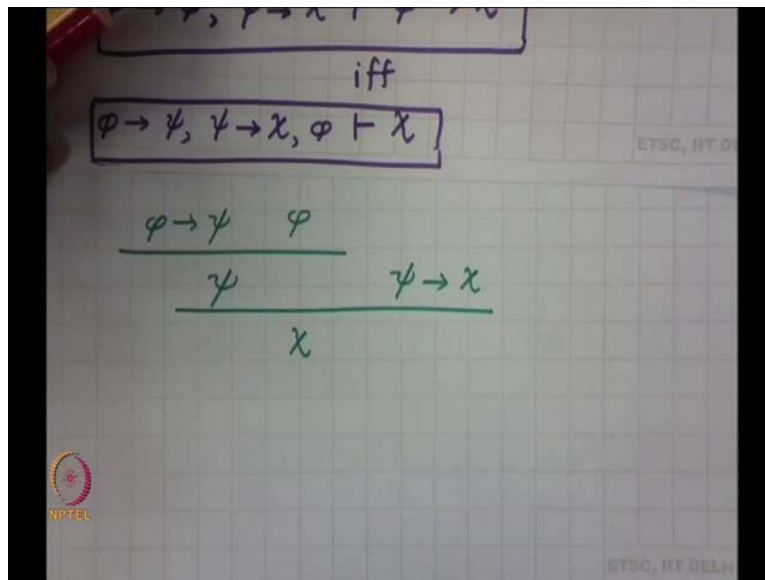 iff
φ → ψ, ψ → χ, φ ⊢ χ
ETSC, IIT DE
φ → ψ φ
ψ ψ → χ
χ
NPTEL
ETSC, IIT DELH